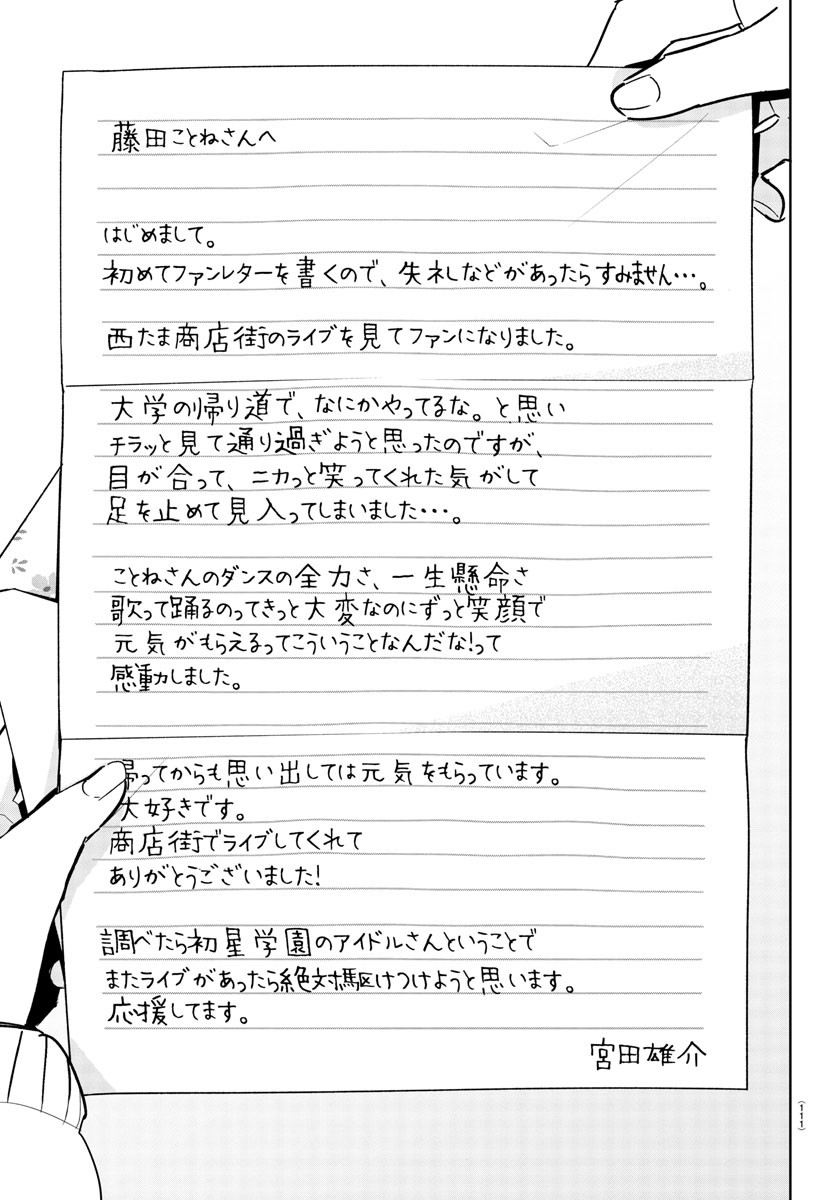 藤田ことねさんへ
はじめまして。
初めてファンレターを書くので、失礼などがあったらすみません…。
西たま商店街のライブを見てファンになりました。
大学の帰り道で、なにかやってるな。と思い
チラッと見て通り過ぎようと思ったのですが、
目が合って、ニカっと笑ってくれた気がして
足を止めて見入ってしまいました…。
ことねさんのダンスの全力さ、一生懸命さ
歌って踊るのってきっと大変なのにずっと笑顔で
元気がもらえるってこういうことなんだな!って
感動しました。
帰ってからも思い出しては元気をもらっています。
大好きです。
商店街でライブしてくれて
ありがとうございました!
調べたら初星学園のアイドルさんということで
またライブがあったら絶対駆けつけようと思います。
応援してます。
宮田雄介
(111)